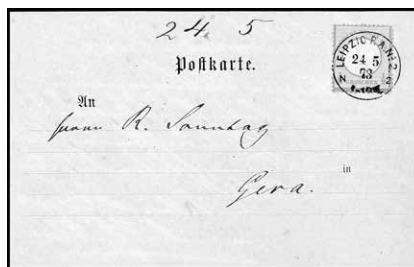 24. 5
Postkarte.
LEIPZIG P.A. No 2
24 5
73
An
Herrn R. Sonntag
in
Gera.